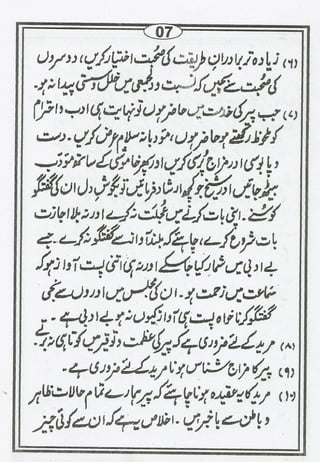 07
(۶) زیادہ تر برادرانِ طریقت کی صحبت اختیار کریں، دوسروں
کی صحبت سے بچیں کہ نسبت و دلجمعی میں خلل و سستی پیدا نہ ہو۔
(۷) جب پیر کی خدمت میں حاضر ہوں تو نہایت ہی ادب و احترام
کو ملحوظ رکھتے ہو حاضر ہوں، مؤدبانہ سلام عرض کریں۔ دست
و پا بوسی اور مزاج پُرسی کریں اور پھر خاموشی کے ساتھ مؤدب
بیٹھ جائیں اور شیخ جو کچھ ارشاد فرمائیں تو بگوشِ دل ان کی گفتگو
کو سُنے۔ اپنی بات کرنے میں عُجلت نہ کرے اور نہ بلا اجازت
بات شروع کرے، چاہئے کہ بلند آواز سے گفتگو نہ کرے۔ جسے
بے ادبی میں شمار کیا جا سکے اور نہ ہی اتنی پست آواز ہو کہ
سماعت میں زحمت ہو۔ ان کی مجلس میں اوروں سے نجی
گفتگو کرنا خواہ پست ہی آواز کیوں نہ ہو بے ادبی ہے۔
(۸) مرید کے لئے ضروری ہے کہ پیر کی عظمت و توقیر میں کوتاہی نہ برتے۔
(۹) پیر کا مزاج شناس ہونا مرید کے لئے ضروری ہے۔
(۱۰) مرید کا یہ عقیدہ ہونا چاہئے کہ پیر ہمارے تمام حالات ظاہر
و باطن سے باخبر ہیں۔ اخلاص یہ ہے کہ ان سے کوئی چیز